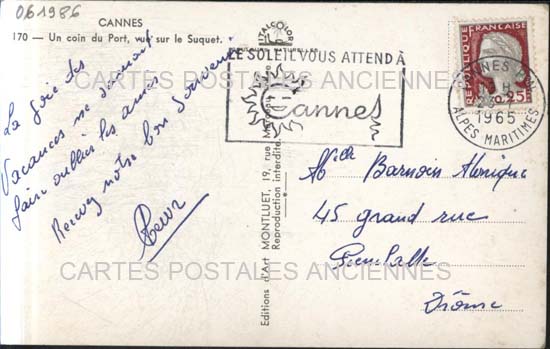 061986
CANNES
170 — Un coin du Port, vue sur le Suquet.
La joie des
Vacances ne doivent
faire oublier les amies
Recevez notre bon souvenir
ITALCOLOR
LE SOLEIL VOUS ATTEND À
Cannes
REPUBLIQUE FRANÇAISE
0,25
CANNES
1965
ALPES MARITIMES
Editions d'Art MONTLUET, 19, rue
Reproduction interdite.
CARTES POSTALES ANCIENNES
Melle Barnoin Monique
45 grand rue
Pierrelatte
Drôme
CARTES POSTALES ANCIENNES